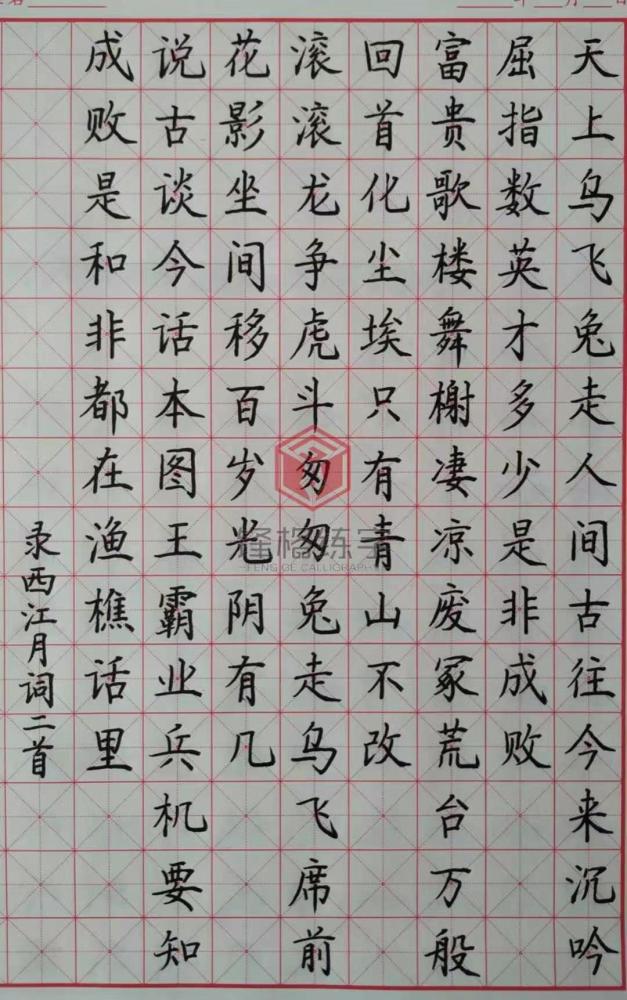 天上乌飞兔走人间古往今来沉吟
屈指数英才多少是非成败
富贵歌楼舞榭凄凉废冢荒台万般
回首化尘埃只有青山不改
滚滚龙争虎斗匆匆兔走乌飞席前
花影坐间移百岁光阴有几
说古谈今话本图王霸业兵机要知
成败是和非都在渔樵话里
录西江月词二首
锋格练字
FENG GE CALLIGRAPHY